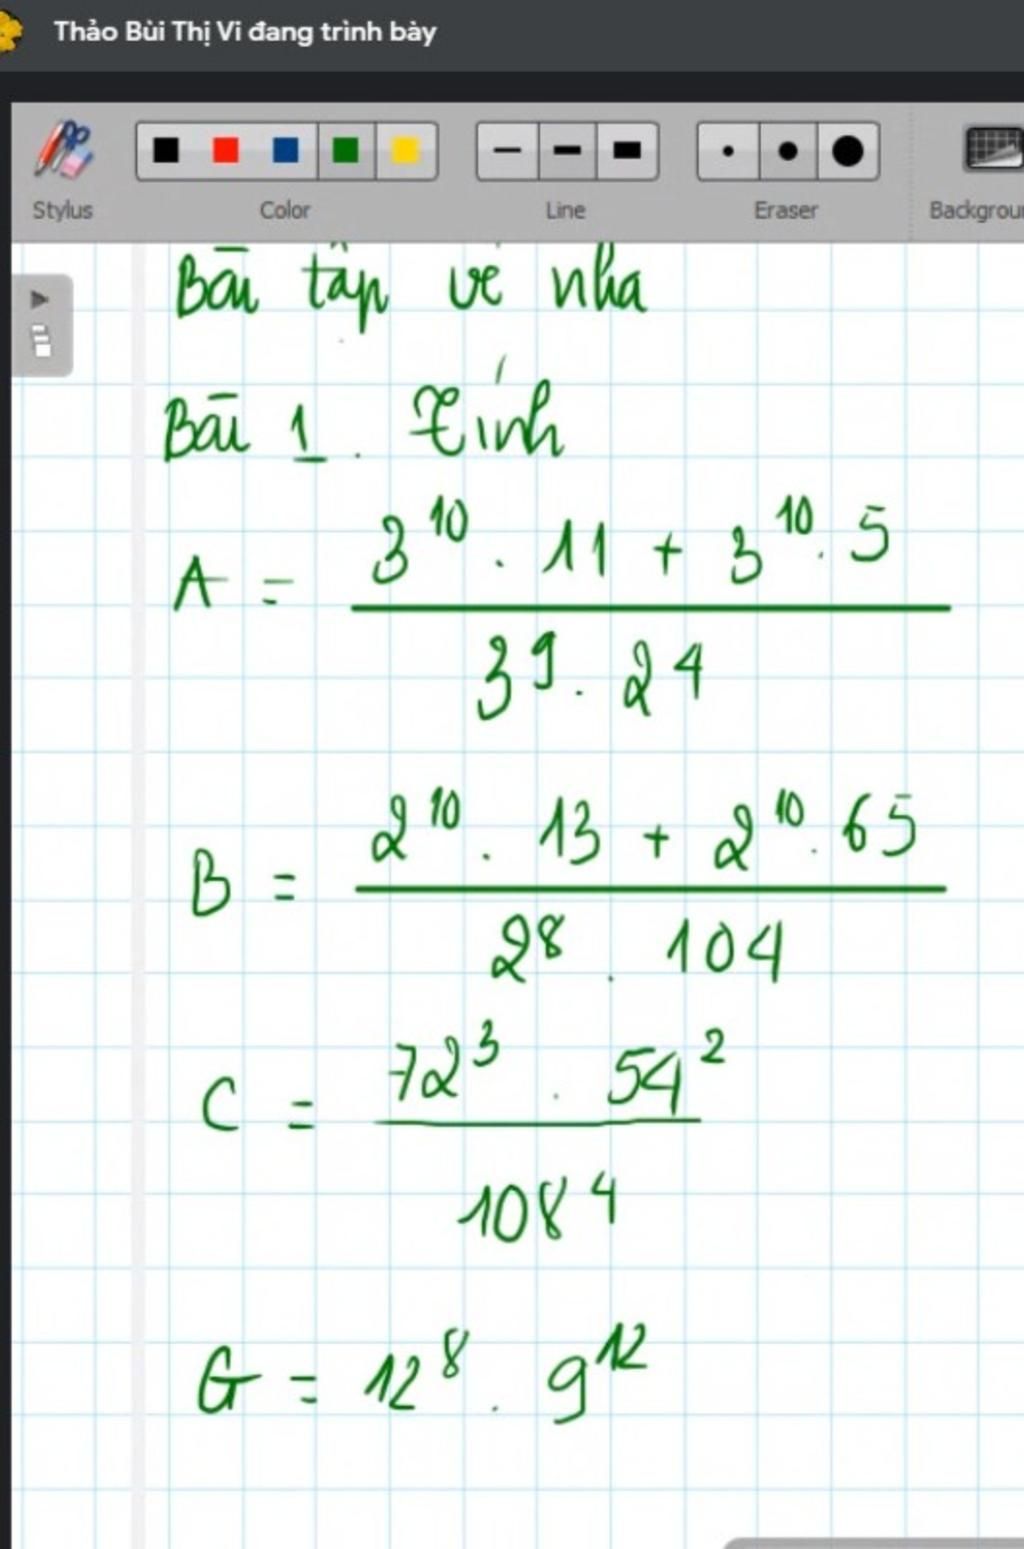 Thảo Bùi Thị Vi đang trình bày
Stylus Color Line Eraser Backgrou
Bài tập về nhà
Bài 1. Tính
A = \frac{3^{10} . 11 + 3^{10} . 5}{3^9 . 2^4}
B = \frac{2^{10} . 13 + 2^{10} . 65}{2^8 . 104}
C = \frac{72^3 . 54^2}{108^4}
G = 12^8 . 9^{12}